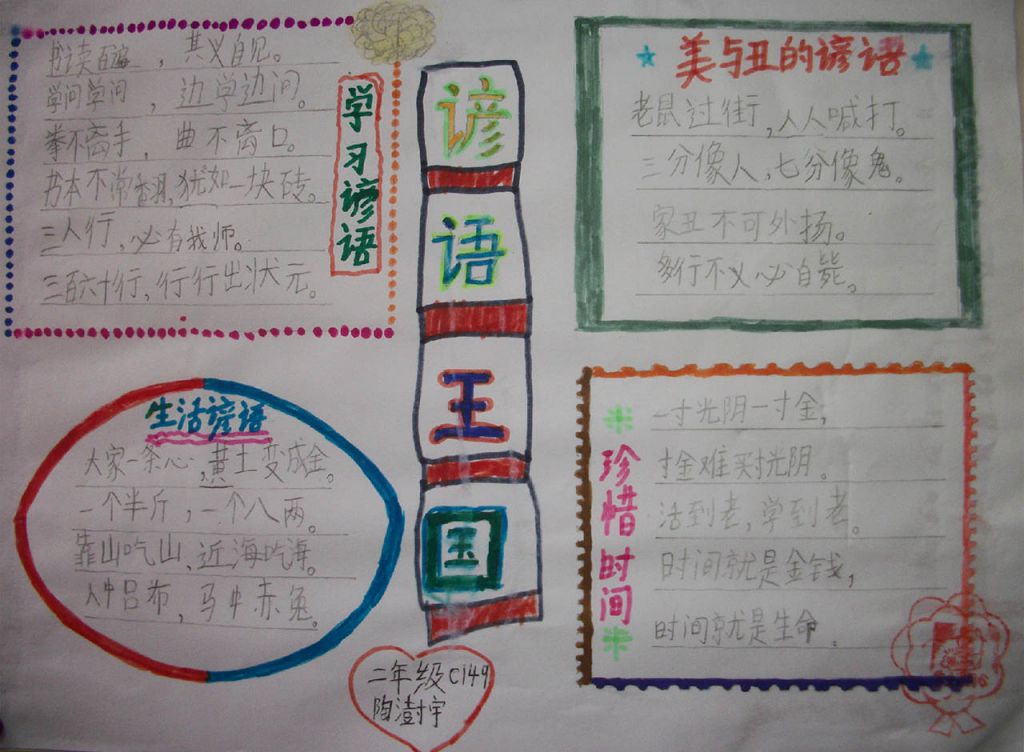 谚语王国
学习谚语
书读百遍，其义自见。
学问学问，边学边问。
拳不离手，曲不离口。
书本不常翻,犹如一块砖。
三人行,必有我师。
三百六十行,行行出状元。
美与丑的谚语
老鼠过街,人人喊打。
三分像人,七分像鬼。
家丑不可外扬。
多行不义必自毙。
生活谚语
大家一条心,黄土变成金。
一个半斤,一个八两。
靠山吃山,近海吃海。
人中吕布,马中赤兔。
珍惜时间
一寸光阴一寸金,
寸金难买寸光阴。
活到老,学到老。
时间就是金钱,
时间就是生命.
二年级C149
陶澍宇